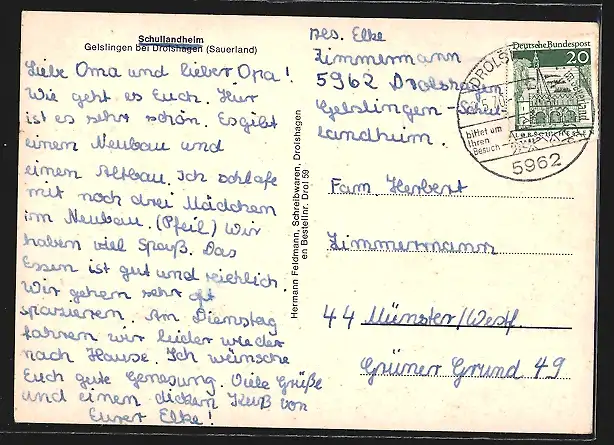 Schullandheim
Gelslingen bei Drolshagen (Sauerland)
Liebe Oma und lieber Opa!
Wie geht es Euch. Hier
ist es sehr schön. Es gibt
einen Neubau und
einen Altbau. Ich schlafe
mit noch drei Mädchen
im Neubau. (Pfeil) Wir
haben viel Spaß. Das
Essen ist gut und reichlich.
Wir gehen sehr oft
spazieren. Am Dienstag
fahren wir leider wieder
nach Hause. Ich wünsche
Euch gute Genesung. Viele Grüße
und einen dicken Kuß von
Eurer Elke!
Hermann Feldmann, Schreibwaren, Drolshagen
en Bestellnr. Drol 59
Abs. Elke
Zimmermann
5962 Drolshagen
Gelslingen-Schul
landheim.
Fam. Herbert
Zimmermann
44 Münster/Westf.
Grüner Grund 49
Deutsche Bundespost
20
DROLSH
5.70
bittet um
Ihren
Besuch
5962